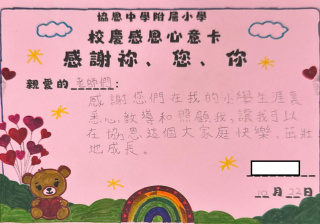 協恩中學附屬小學
校慶感恩心意卡
感謝祢、您、你
親愛的老師們：
感謝您們在我的小學生涯裏
悉心教導和照顧我，讓我可以
在協恩這個大家庭快樂、茁壯
地成長。
10月22日